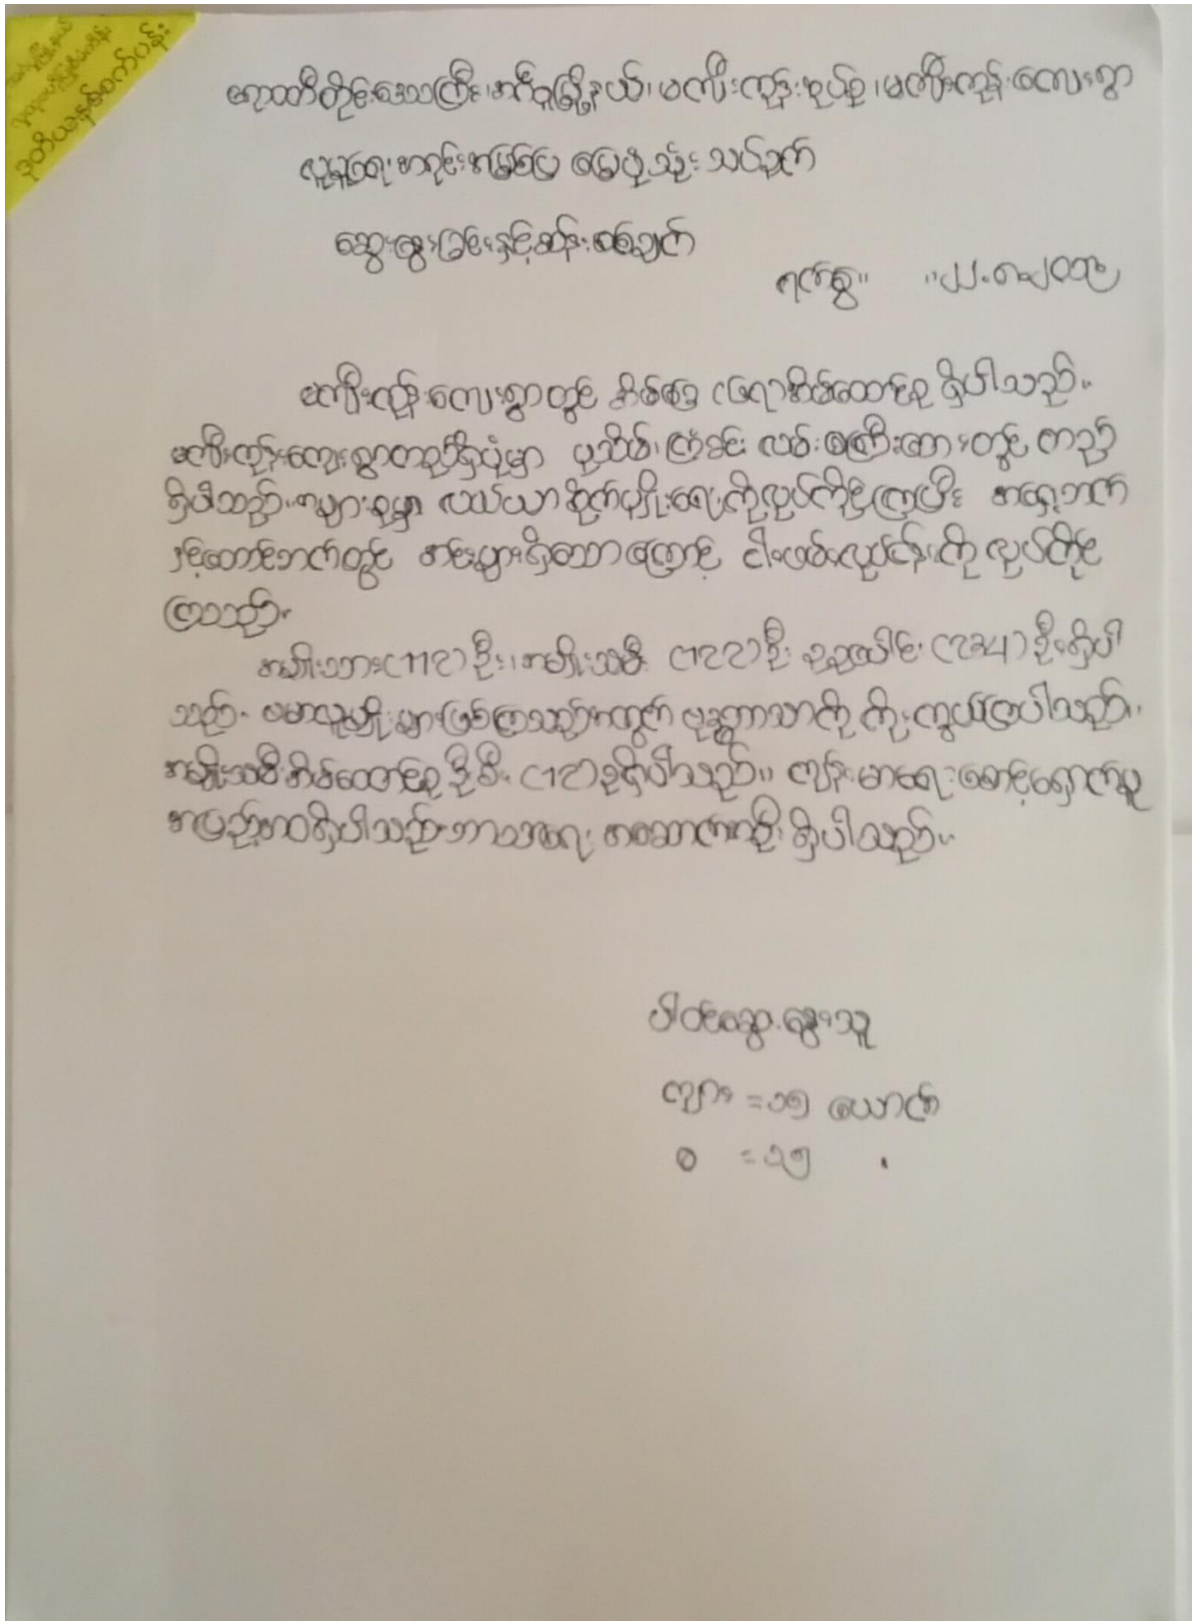 ဒုတိယနှစ်စက်ပန်း
ဧရာဝတီတိုင်းဒေသကြီး၊ အင်္ဂပူမြို့နယ်၊ မကျီးကုန်းအုပ်စု၊ မကျီးကုန်းကျေးရွာ
လူမှုရေးအရင်းအမြစ်ပြ မြေပုံသုံးသပ်ချက်
ဆွေးနွေးခြင်းနှင့်ဆန်းစစ်ချက်
ရက်စွဲ။ ။
မကျီးကုန်းကျေးရွာတွင် အိမ်ခြေ အိမ်ထောင်စု ရှိပါသည်။
မကျီးကုန်းကျေးရွာတည်ရှိပုံမှာ ပုသိမ်၊ ကြံခင်း လမ်းမကြီးဘေးတွင် တည်
ရှိပါသည်။ အများစုမှာ လယ်ယာစိုက်ပျိုးရေးကိုလုပ်ကိုင်ကြပြီး အရှေ့ဘက်
နှင့်တောင်ဘက်တွင် အင်းများရှိသောကြောင့် ငါးဖမ်းလုပ်ငန်းကို လုပ်ကိုင်
ကြသည်။
အမျိုးသား (112) ဦး၊ အမျိုးသမီး (122) ဦး စုစုပေါင်း (234) ဦးရှိပါ
သည်။ ဗမာလူမျိုးများဖြစ်ကြသည့်အတွက် ဗုဒ္ဓဘာသာကို ကိုးကွယ်ကြပါသည်။
အမျိုးသမီးအိမ်ထောင်စုဦးစီး (12) ဦးရှိပါသည်။ ကျန်းမာရေးစောင့်ရှောက်မှု
အပြည့်အဝရှိပါသည်။ ဘာသာရေး အဆောက်အဦး ရှိပါသည်။
ပါဝင်ဆွေးနွေးသူ
ကျား = ၁၅ ယောက်
မ = ၁၅ "